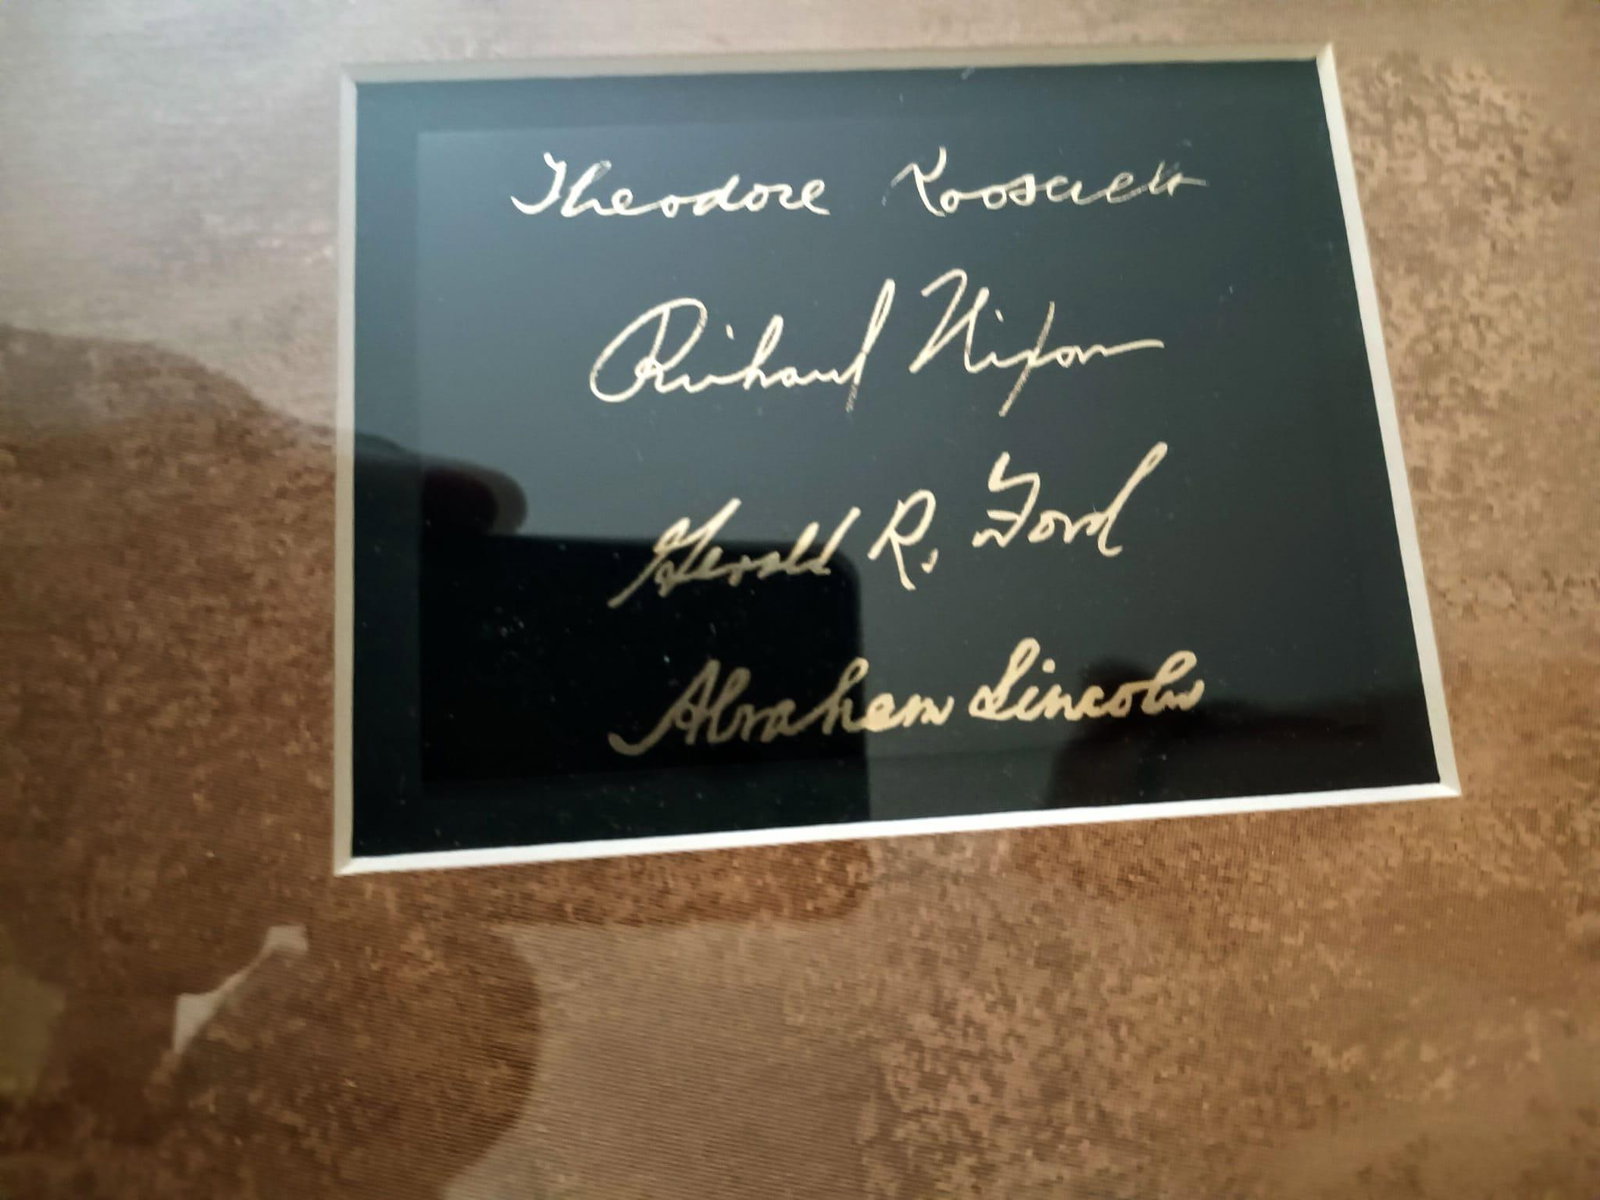 Theodore Roosevelt
Richard Nixon
Gerald R. Ford
Abraham Lincoln